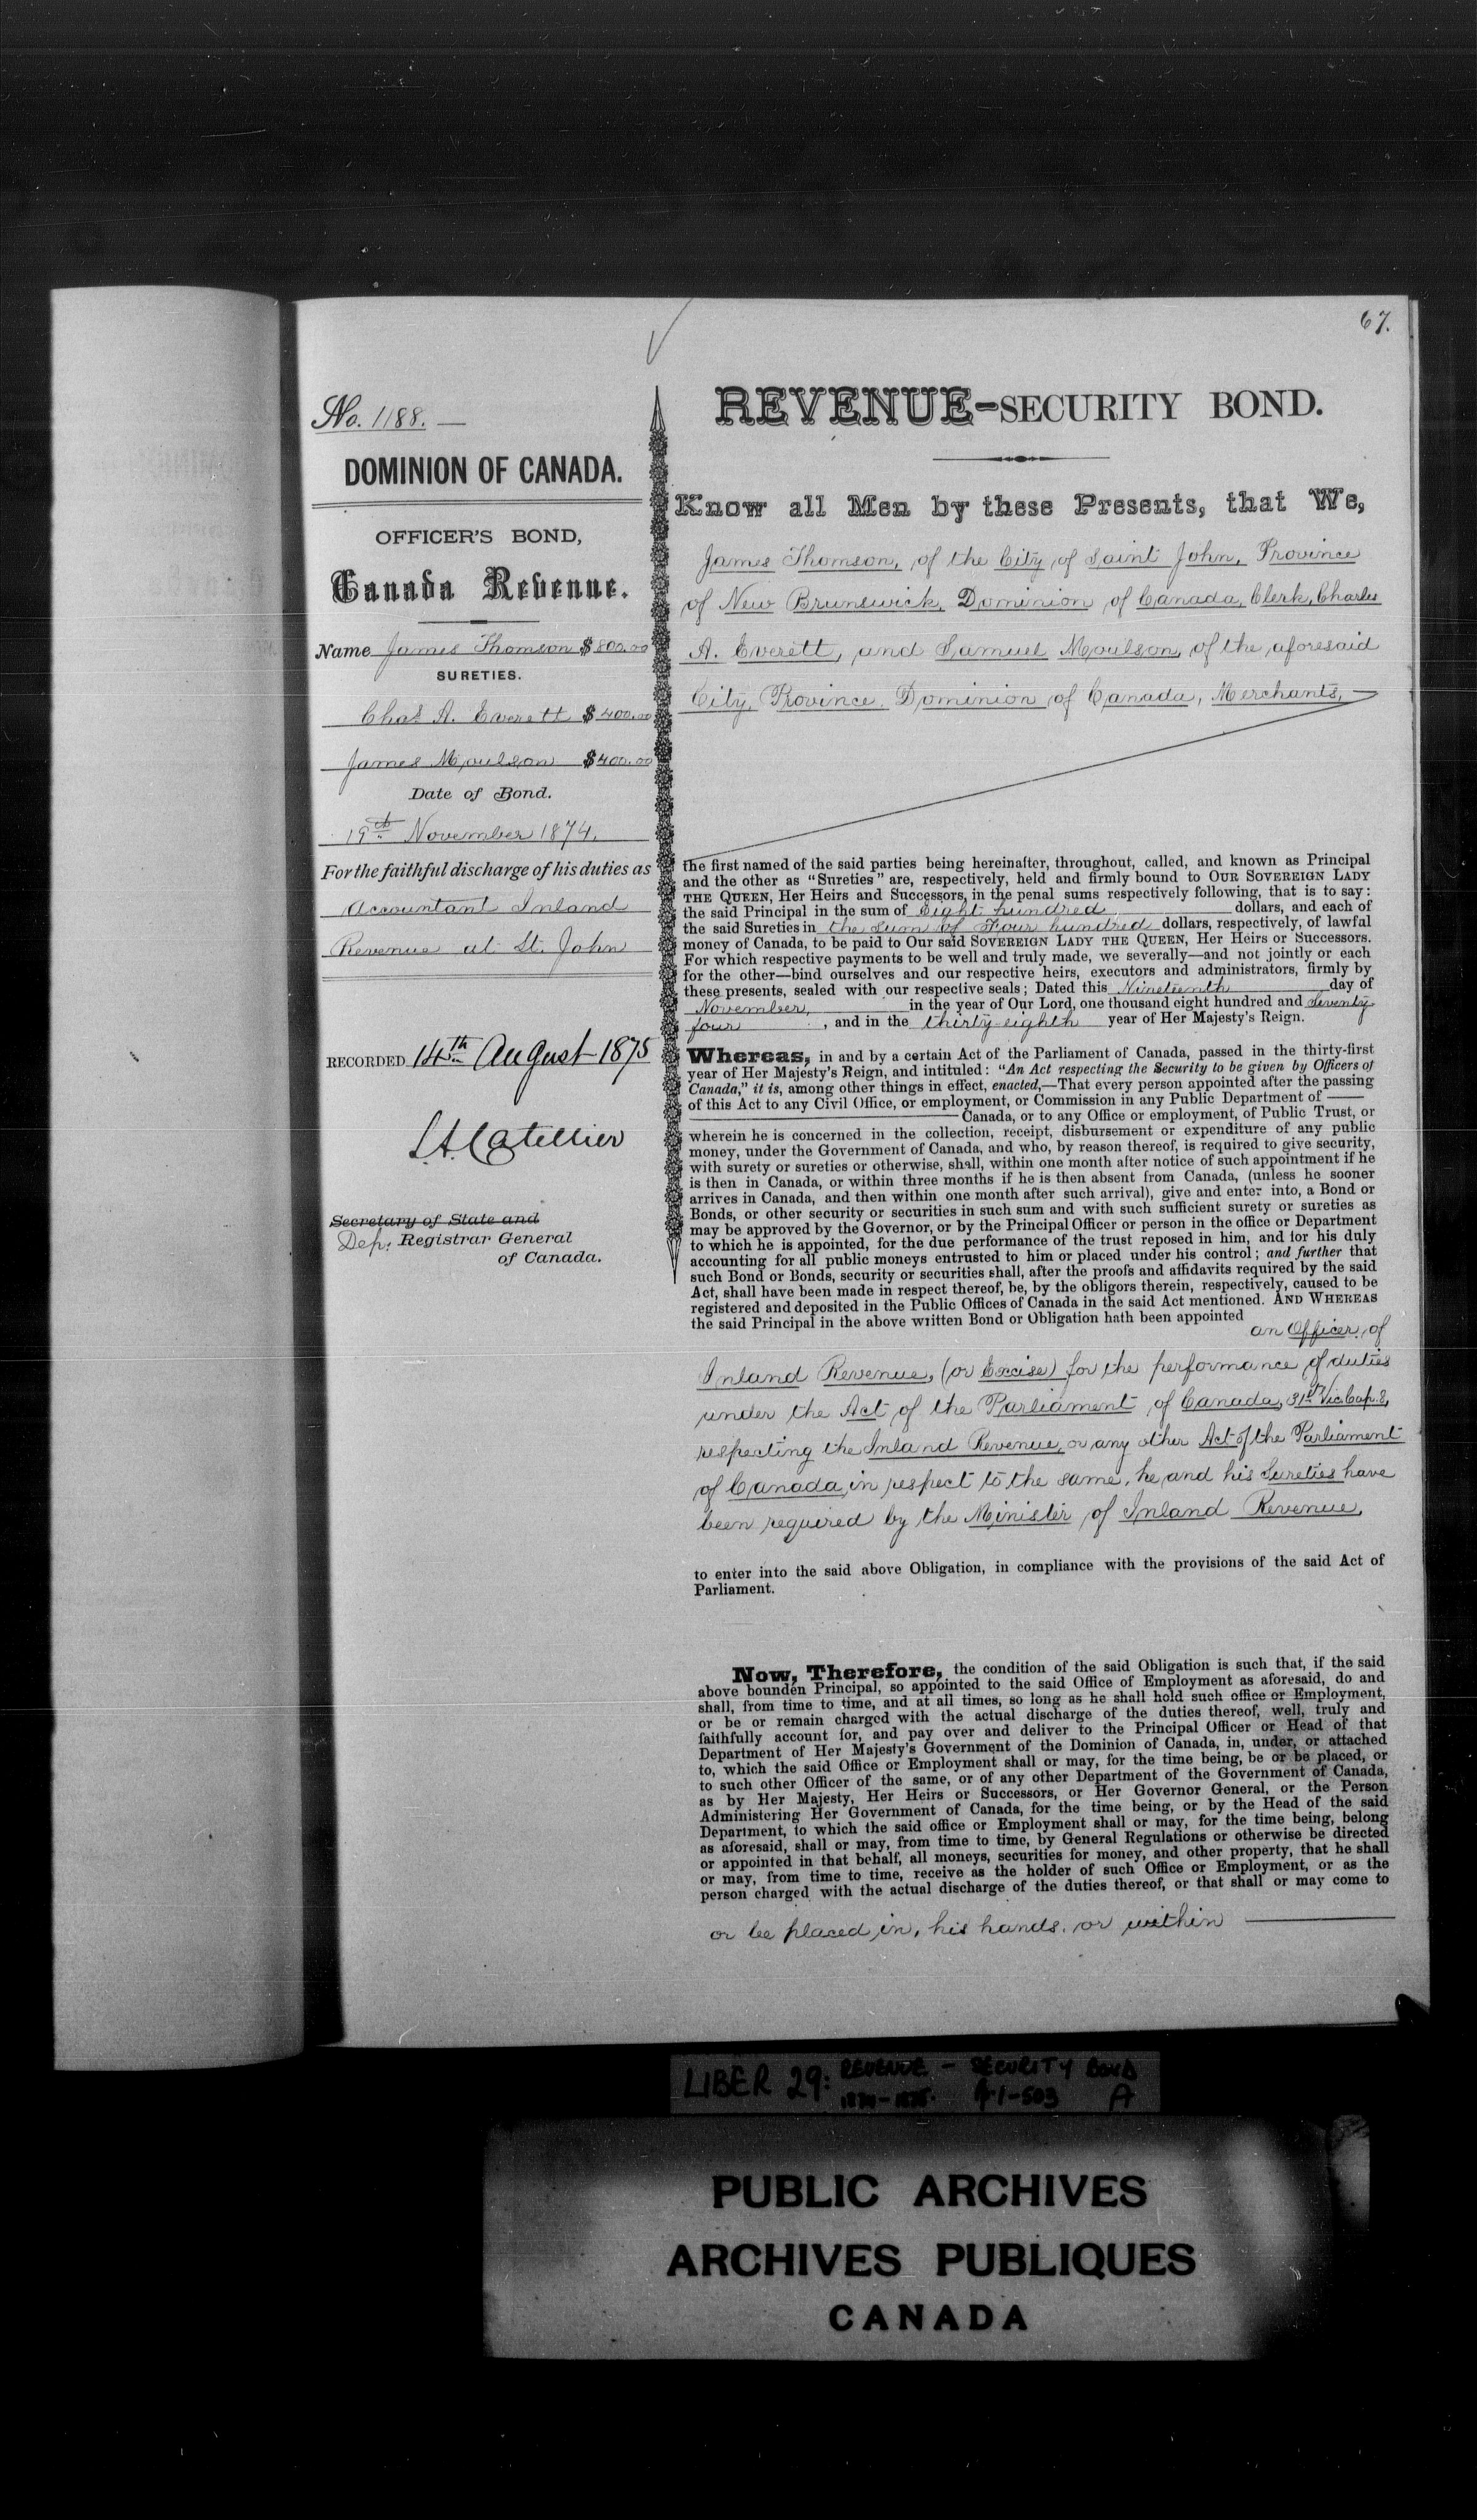 67.
No. 1188.
DOMINION OF CANADA.
OFFICER'S BOND,
Canada Revenue.
Name James Thomson $800.00
SURETIES.
Chas A. Everett $400.00
James Moulson $400.00
Date of Bond.
19th November 1874.
For the faithful discharge of his duties as
Accountant Inland
Revenue at St. John
RECORDED 14th August 1875
Secretary of State and
Dep. Registrar General
of Canada.
REVENUE-SECURITY BOND.
Know all Men by these Presents, that We,
James Thomson, of the City of Saint John, Province
of New Brunswick, Dominion of Canada, Clerk, Charles
A. Everett, and Samuel Moulson, of the aforesaid
City, Province, Dominion of Canada, Merchants,
the first named of the said parties being hereinafter, throughout, called, and known as Principal
and the other as "Sureties" are, respectively, held and firmly bound to OUR SOVEREIGN LADY
THE QUEEN, Her Heirs and Successors, in the penal sums respectively following, that is to say:
the said Principal in the sum of Eight hundred dollars, and each of
the said Sureties in the sum of Four hundred dollars, respectively, of lawful
money of Canada, to be paid to Our said SOVEREIGN LADY THE QUEEN, Her Heirs or Successors.
For which respective payments to be well and truly made, we severally—and not jointly or each
for the other—bind ourselves and our respective heirs, executors and administrators, firmly by
these presents, sealed with our respective seals; Dated this Nineteenth day of
November, in the year of Our Lord, one thousand eight hundred and seventy
four, and in the thirty-eighth year of Her Majesty's Reign.
Whereas, in and by a certain Act of the Parliament of Canada, passed in the thirty-first
year of Her Majesty's Reign, and intituled: "An Act respecting the Security to be given by Officers of
Canada," it is, among other things in effect, enacted,—That every person appointed after the passing
of this Act to any Civil Office, or employment, or Commission in any Public Department of ——
—— Canada, or to any Office or employment, of Public Trust, or
wherein he is concerned in the collection, receipt, disbursement or expenditure of any public
money, under the Government of Canada, and who, by reason thereof, is required to give security,
with surety or sureties or otherwise, shall, within one month after notice of such appointment if he
is then in Canada, or within three months if he is then absent from Canada, (unless he sooner
arrives in Canada, and then within one month after such arrival), give and enter into, a Bond or
Bonds, or other security or securities in such sum and with such sufficient surety or sureties as
may be approved by the Governor, or by the Principal Officer or person in the office or Department
to which he is appointed, for the due performance of the trust reposed in him, and for his duly
accounting for all public moneys entrusted to him or placed under his control; and further that
such Bond or Bonds, security or securities shall, after the proofs and affidavits required by the said
Act, shall have been made in respect thereof, be, by the obligors therein, respectively, caused to be
registered and deposited in the Public Offices of Canada in the said Act mentioned. AND WHEREAS
the said Principal in the above written Bond or Obligation hath been appointed
an Officer of
Inland Revenue, (or Excise) for the performance of duties
under the Act of the Parliament of Canada, 31st Vic. Cap. 8,
respecting the Inland Revenue, or any other Act of the Parliament
of Canada, in respect to the same, he and his Sureties have
been required by the Minister of Inland Revenue,
to enter into the said above Obligation, in compliance with the provisions of the said Act of
Parliament.
Now, Therefore, the condition of the said Obligation is such that, if the said
above bounden Principal, so appointed to the said Office of Employment as aforesaid, do and
shall, from time to time, and at all times, so long as he shall hold such office or Employment,
or be or remain charged with the actual discharge of the duties thereof, well, truly and
faithfully account for, and pay over and deliver to the Principal Officer or Head of that
Department of Her Majesty's Government of the Dominion of Canada, in, under, or attached
to, which the said Office or Employment shall or may, for the time being, be or be placed, or
to such other Officer of the same, or of any other Department of the Government of Canada,
as by Her Majesty, Her Heirs or Successors, or Her Governor General, or the Person
Administering Her Government of Canada, for the time being, or by the Head of the said
Department, to which the said office or Employment shall or may, for the time being, belong
as aforesaid, shall or may, from time to time, by General Regulations or otherwise be directed
or appointed in that behalf, all moneys, securities for money, and other property, that he shall
or may, from time to time, receive as the holder of such Office or Employment, or as the
person charged with the actual discharge of the duties thereof, or that shall or may come to
or be placed in, his hands, or within
LIBER 29: REVENUE - SECURITY BOND
A
PUBLIC ARCHIVES
ARCHIVES PUBLIQUES
CANADA